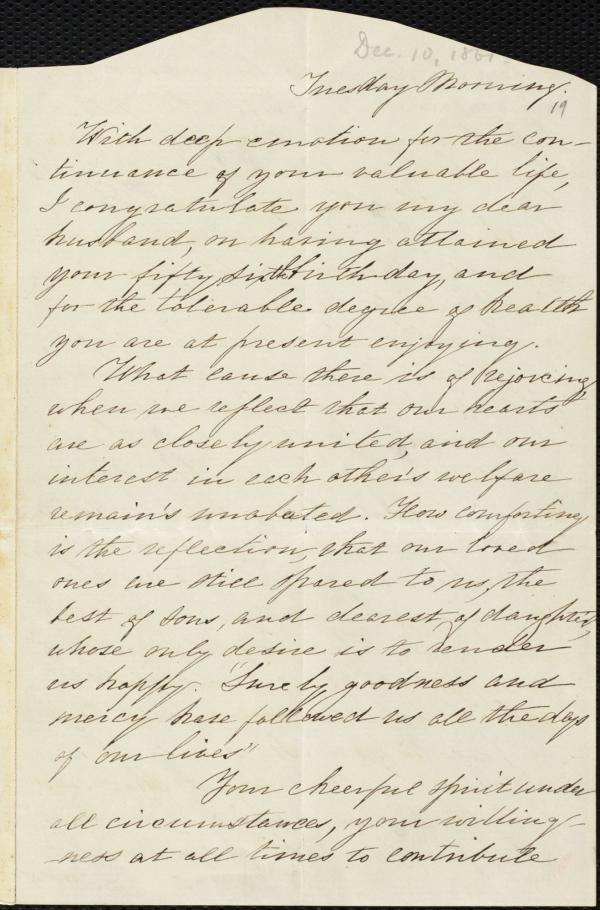 Dec. 10, 1861.
Tuesday Morning.
19
With deep emotion for the con-
tinuance of your valuable life,
I congratulate you my dear
husband, on having attained
your fifty sixth birth-day, and
for the tolerable degree of health
you are at present enjoying.
What cause there is of rejoicing,
when we reflect that our hearts
are as closely united, and our
interest in each other's welfare
remain's unabated. How comforting
is the reflection, that our loved
ones are still spared to us, the
best of sons, and dearest of daughters,
whose only desire is to render
us happy. "Surely goodness and
mercy have followed us all the days
of our lives"
Your cheerful spirit under
all circumstances, your willing-
-ness at all times to contribute